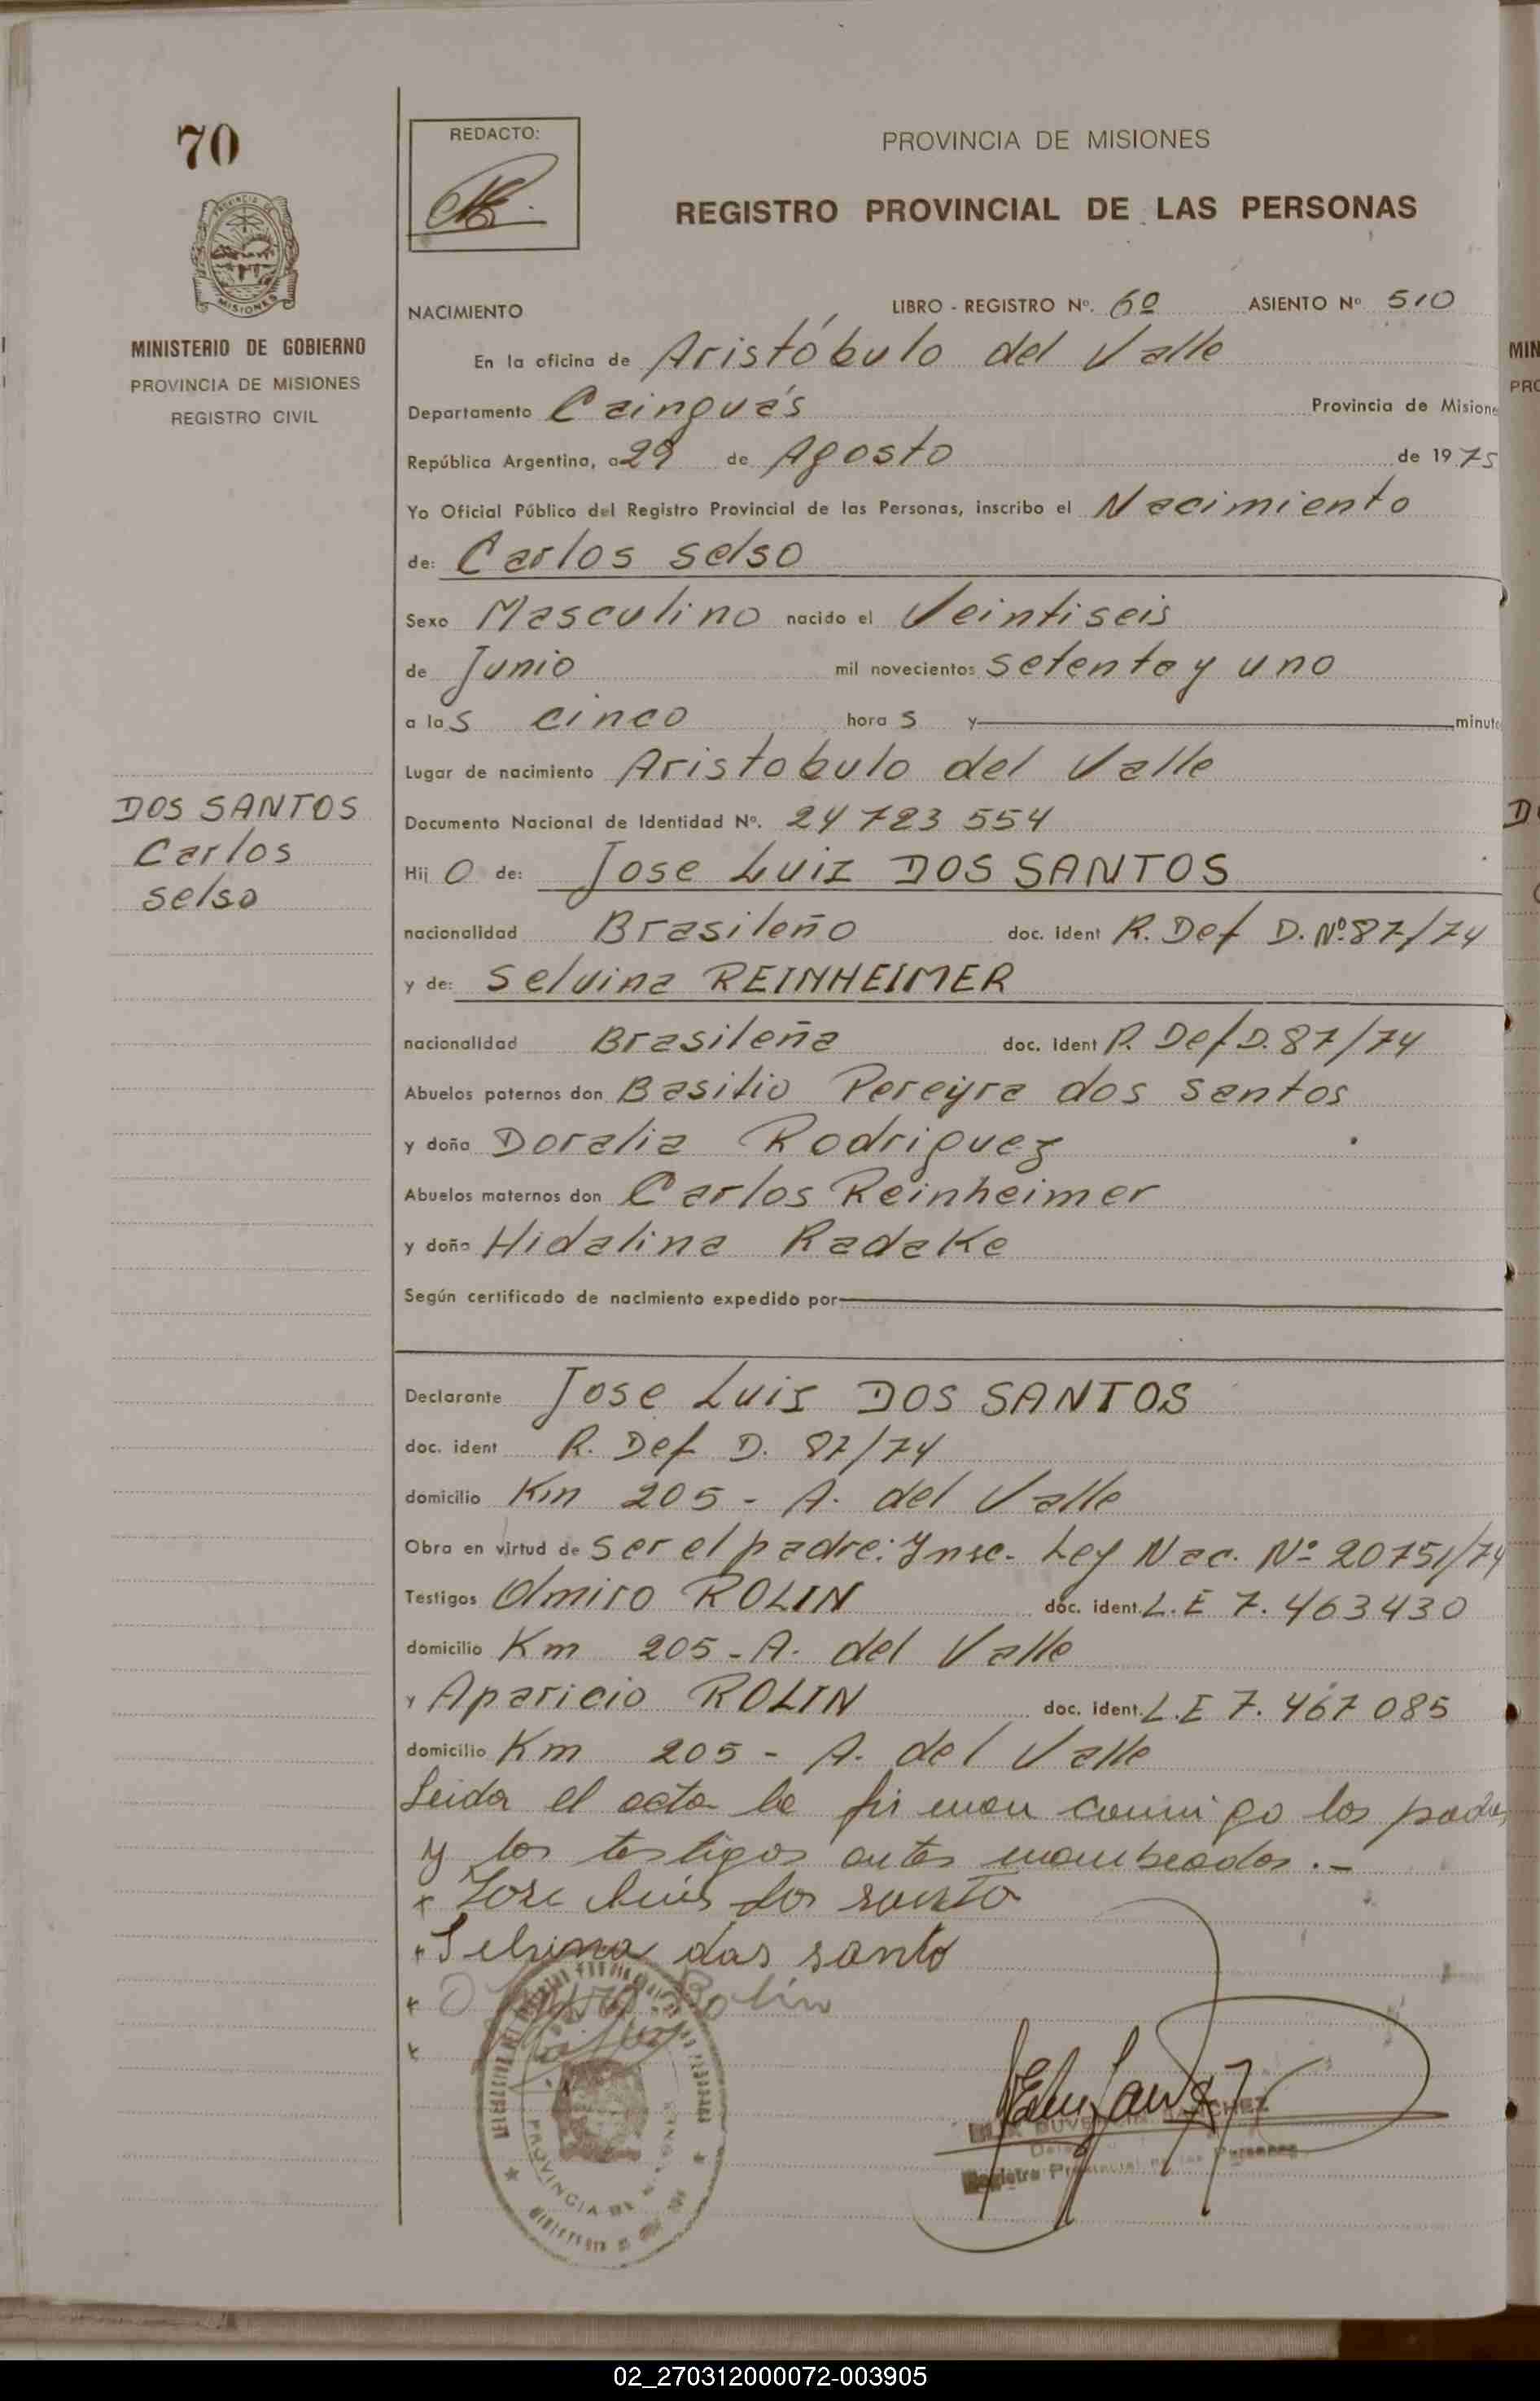 70
REDACTO:
PROVINCIA DE MISIONES
REGISTRO PROVINCIAL DE LAS PERSONAS
MISIONES
MINISTERIO DE GOBIERNO
PROVINCIA DE MISIONES
REGISTRO CIVIL
NACIMIENTO LIBRO - REGISTRO Nº. 6º ASIENTO Nº 510
En la oficina de Aristóbulo del Valle
Departamento Cainguás Provincia de Misione
República Argentina, a 29 de Agosto de 1975
Yo Oficial Público del Registro Provincial de las Personas, inscribo el Nacimiento
de: Carlos selso
Sexo Masculino nacido el Veintiseis
de Junio mil novecientos setenta y uno
a las cinco horas y minuto
Lugar de nacimiento Aristobulo del Valle
DOS SANTOS
Carlos
selso
Documento Nacional de Identidad Nº. 24 723 554
Hijo de: Jose Luiz DOS SANTOS
nacionalidad Brasileño doc. ident R. Def D. Nº 87/74
y de: Selvina REINHEIMER
nacionalidad Brasileña doc. ident R. Def D. 87/74
Abuelos paternos don Basilio Pereyra dos santos
y doña Doralia Rodriguez
Abuelos maternos don Carlos Reinheimer
y doña Hidalina Radake
Según certificado de nacimiento expedido por
Declarante Jose Luis DOS SANTOS
doc. ident R. Def D. 87/74
domicilio Km 205 - A. del Valle
Obra en virtud de ser el padre: Ynsc. Ley Nac. Nº 20751/74
Testigos Olmiro ROLIN doc. ident. L.E 7.463430
domicilio Km 205 - A. del Valle
y Aparicio ROLIN doc. ident. L.E 7.467085
domicilio Km 205 - A. del Valle
Leida el acta la firman conmigo los padres
y los testigos antes nombrados.-
x Jose Luis dos santo
x Selvina das santo
x Rolin
x
PROVINCIA DE MISIONES
SANCHEZ
Registro Provincial de las Personas
MIN
PRO
02_270312000072-003905